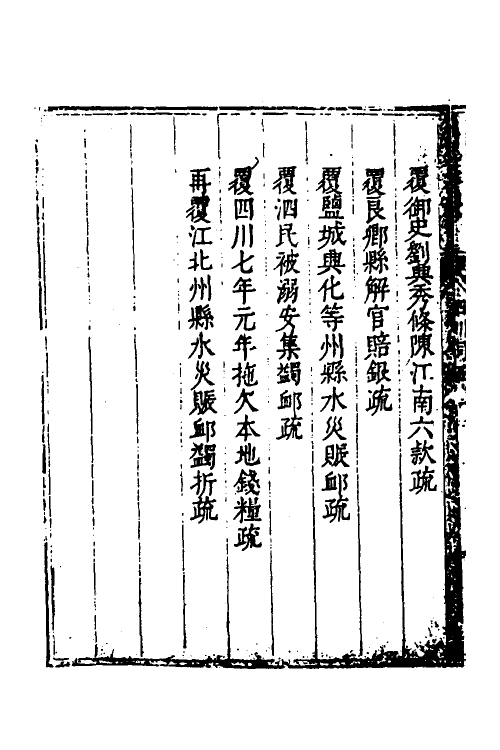 覆御史劉興秀條陳江南六款疏
覆良鄉縣解官賠銀疏
覆鹽城興化等州縣水災賑卹疏
覆泗民被溺安集蠲卹疏
覆四川七年元年拖欠本地錢糧疏
再覆江北州縣水災賬卹蠲折疏